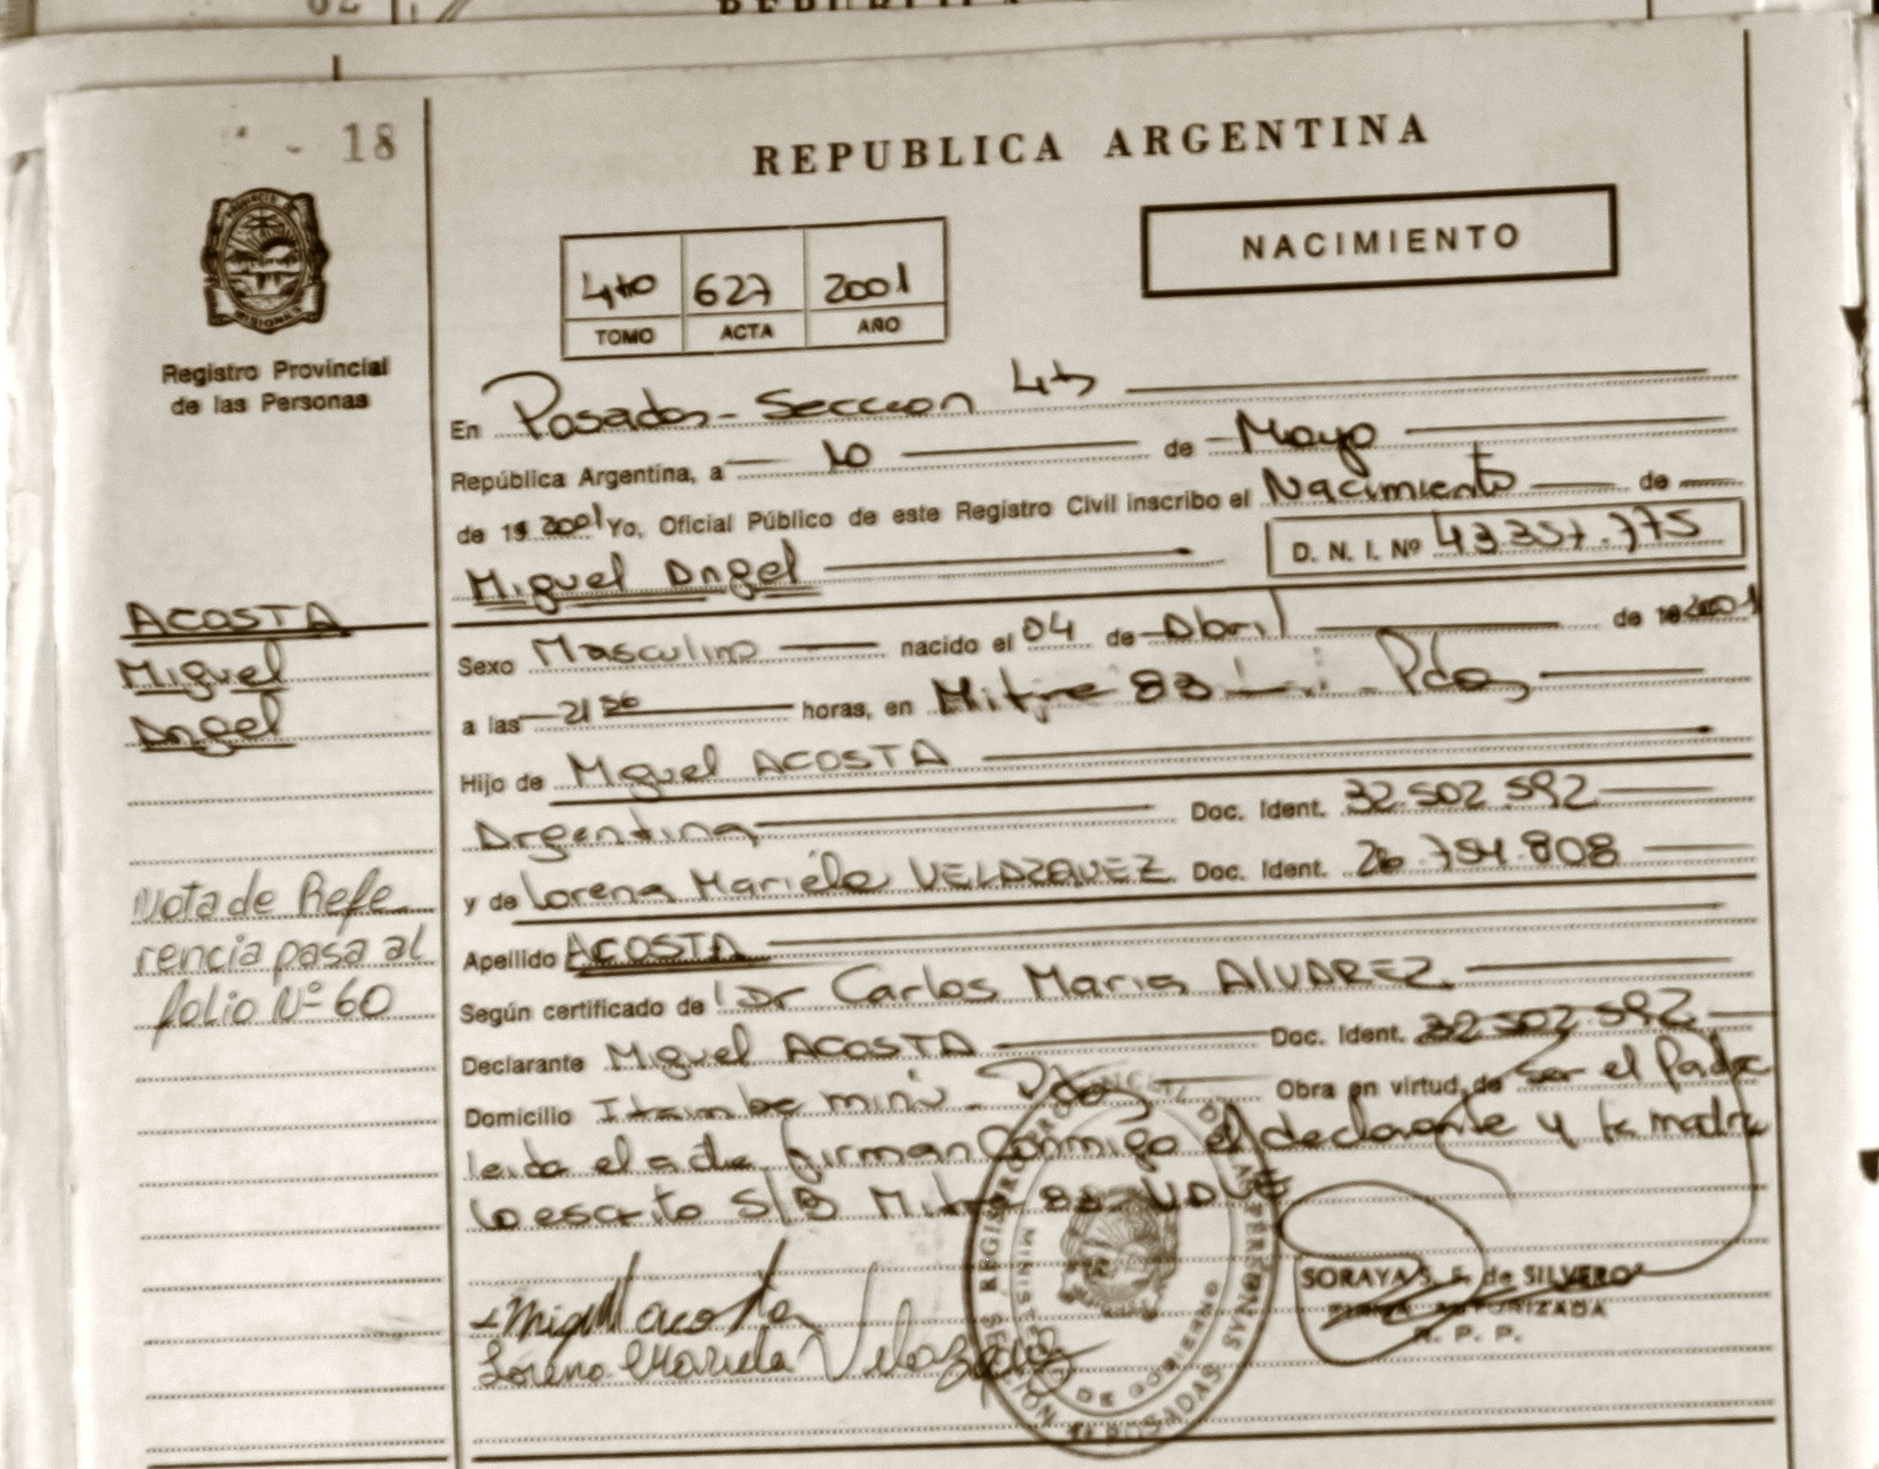 REPUBLICA
18
REPUBLICA ARGENTINA
NACIMIENTO
4to 627 2001
TOMO ACTA AÑO
PROVINCIA DE
MISIONES
Registro Provincial
de las Personas
En Posadas - Seccion 4ta
República Argentina, a 10 de Mayo
de 19 2001 Yo, Oficial Público de este Registro Civil inscribo el Nacimiento de
Miguel Angel D. N. I. Nº 43.357.775
ACOSTA
Miguel
Angel
Sexo Masculino nacido el 04 de Abril de 19 2001
a las 21 30 horas, en Mitre 83 Pdas
Hijo de Miguel ACOSTA
Argentina Doc. Ident. 32.502.592
y de Lorena Mariela VELAZQUEZ Doc. Ident. 26.754.808
Apellido ACOSTA
Según certificado de Dr Carlos Maria ALVAREZ
Declarante Miguel ACOSTA Doc. Ident. 32.502.592
Domicilio Itaimbe mini - Pdas Obra en virtud de Ser el Padre
leida el acta firman Conmigo el declarante y la madre
lo escrito S/B Mitre 83. VALE
Nota de Refe
rencia pasa al
folio Nº 60
Miguel acosta
Lorena Mariela Velazquez
SORAYA S. F. de SILVERO
FIRMA AUTORIZADA
R. P. P.
REGISTRO PROVINCIAL DE LAS PERSONAS
MINISTERIO DE GOBIERNO
SECCION 4ta POSADAS